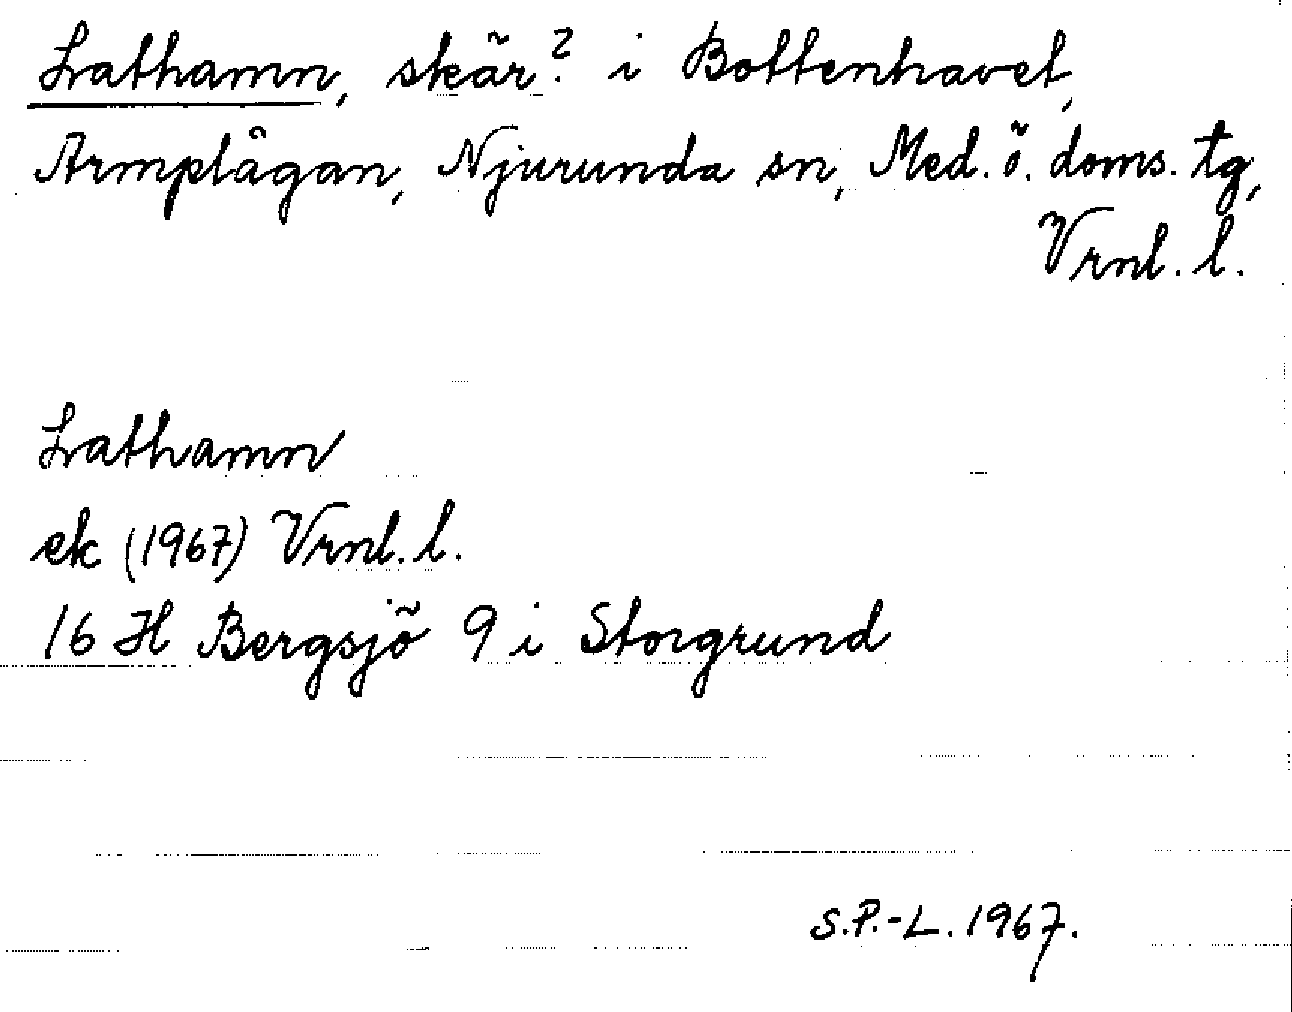 Lathamn, skär? i Bottenhavet,
Armplågan, Njurunda sn, Med. ö. doms. tg,
Vrnl. l.
Lathamn
ek (1967) Vrnl. l.
16 H Bergsjö 9 i Storgrund
S.P.-L. 1967.